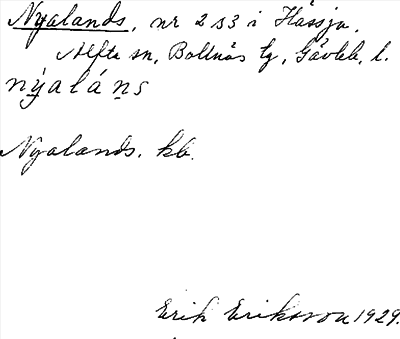 Nyalands, nr 2 o 3 i Hässja,
Alfta sn, Bollnäs tg, Gävleb. l.
nýaláṇs
Nyalands. kb.
Erik Eriksson 1929.